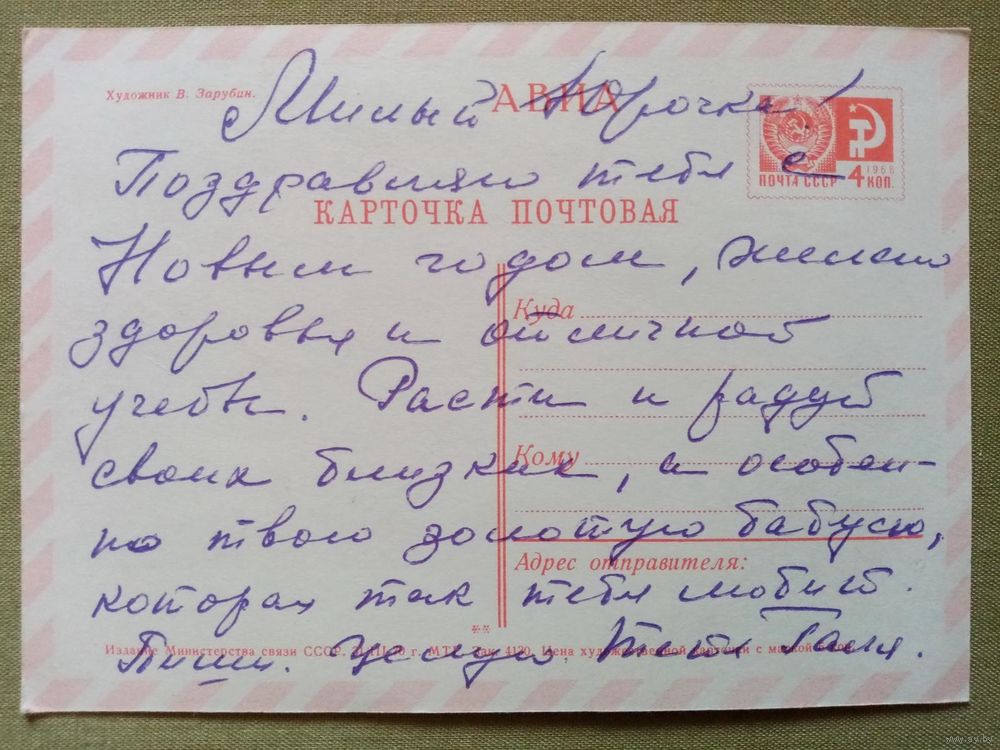 Художник В. Зарубин.
АВИА
Милый Юрочка!
ПОЧТА СССР 4 КОП. 1968
Поздравляю тебя с
КАРТОЧКА ПОЧТОВАЯ
Новым годом, желаю
Куда
здоровья и отличной
учебы. Расти и радуй
Кому
своих близких, а особен-
но твою золотую бабусю,
Адрес отправителя:
которая так тебя любит.
Издание Министерства связи СССР. г. Зак. 4130. Цена художественной карточки с маркой
Пиши. Целую Тетя Галя.
www.ay.by